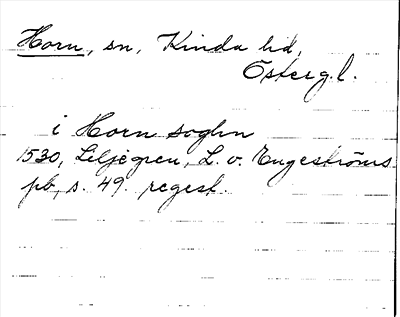 Horn, sn, Kinda hd,
Österg.l.
i Horn soghn
1530, Liljegren, L. v. Engeströms
pb, s. 49. regest.